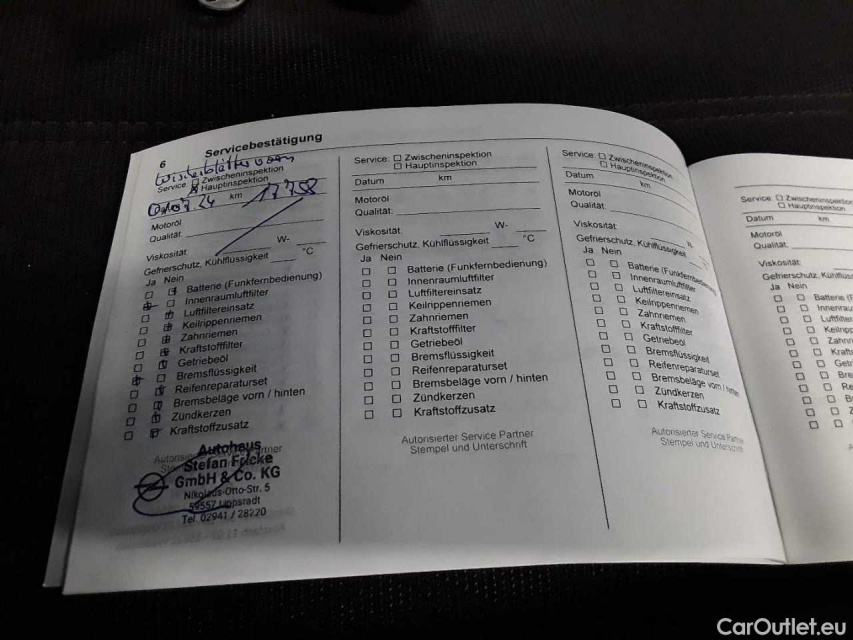 6 Servicebestätigung
Wischerblätter vorn
Service: Zwischeninspektion
Hauptinspektion
07.24 km
Motoröl
Qualität:
Viskosität: W-
Gefrierschutz, Kühlflüssigkeit °C
Ja Nein
Batterie (Funkfernbedienung)
Innenraumluftfilter
Luftfiltereinsatz
Keilrippenriemen
Zahnriemen
Kraftstofffilter
Getriebeöl
Bremsflüssigkeit
Reifenreparaturset
Bremsbeläge vorn / hinten
Zündkerzen
Kraftstoffzusatz
Autohaus
Stefan Fricke
GmbH & Co. KG
Nikolaus-Otto-Str. 5
59557 Lippstadt
Tel. 02941 / 28220
Service: Zwischeninspektion
Hauptinspektion
Datum km
Motoröl
Qualität:
Viskosität: W-
Gefrierschutz, Kühlflüssigkeit °C
Ja Nein
Batterie (Funkfernbedienung)
Innenraumluftfilter
Luftfiltereinsatz
Keilrippenriemen
Zahnriemen
Kraftstofffilter
Getriebeöl
Bremsflüssigkeit
Reifenreparaturset
Bremsbeläge vorn / hinten
Zündkerzen
Kraftstoffzusatz
Autorisierter Service Partner
Stempel und Unterschrift
Service: Zwischeninspektion
Hauptinspektion
Datum km
Motoröl
Qualität:
Viskosität: W-
Gefrierschutz, Kühlflüssigkeit
Ja Nein
Batterie (Funkfernbedienung)
Innenraumluftfilter
Luftfiltereinsatz
Keilrippenriemen
Zahnriemen
Kraftstofffilter
Getriebeöl
Bremsflüssigkeit
Reifenreparaturset
Bremsbeläge vorn / hinten
Zündkerzen
Kraftstoffzusatz
Autorisierter Service Partner
Stempel und Unterschrift
Service: Zwischeninspektion
Hauptinspektion
Datum km
Motoröl
Qualität:
Viskosität:
Gefrierschutz, Kühlflüss
Ja Nein
Batterie (F
Innenrau
Luftfilte
Keilripp
Zahnri
Krafts
Getri
Bre
Re
B
Z
CarOutlet.eu